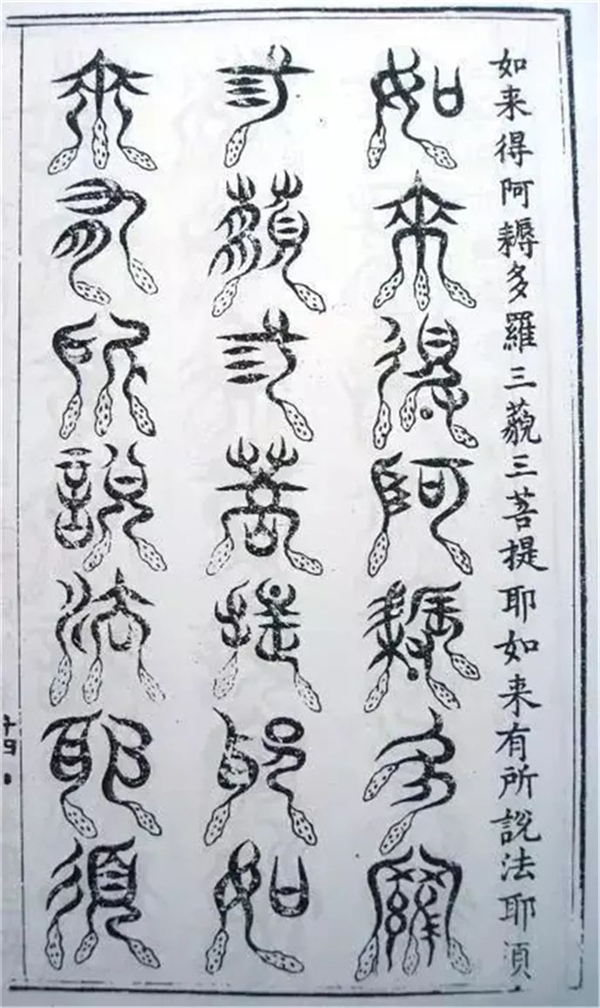 如来得阿耨多羅三藐三菩提耶如来有所說法耶須
如來得阿耨多羅
三藐三菩提耶如
來有所說法耶須
十四